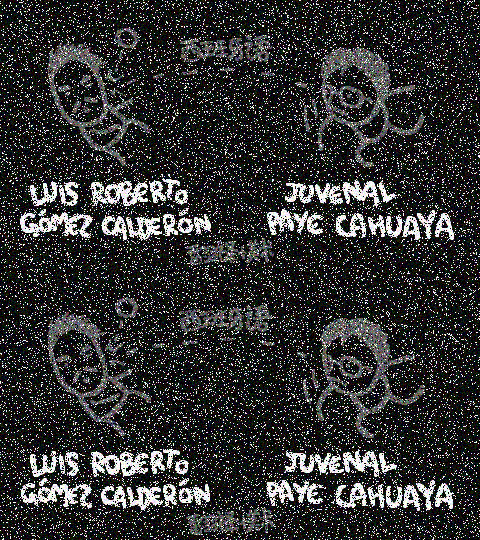 LUIS ROBERTO
GÓMEZ CALDERÓN
JUVENAL
PAYE CAHUAYA
LUIS ROBERTO
GÓMEZ CALDERÓN
JUVENAL
PAYE CAHUAYA